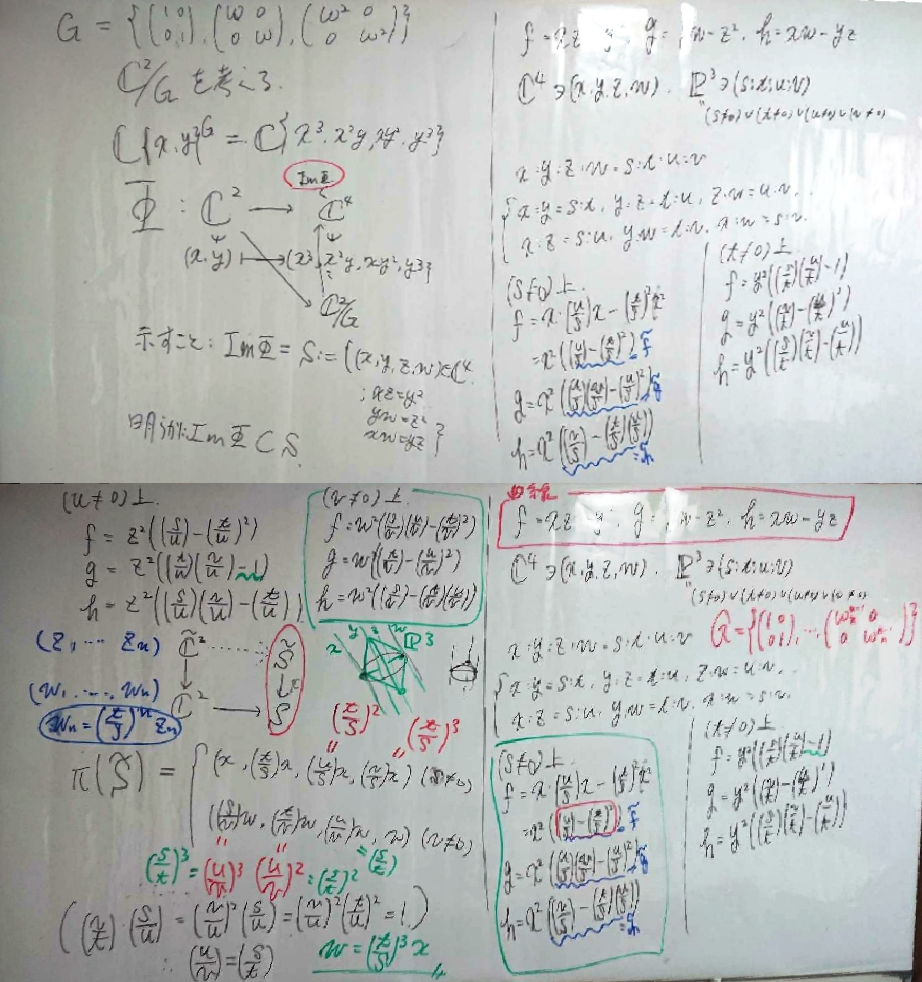 G = {(1 0 / 0 1), (ω 0 / 0 ω), (ω² 0 / 0 ω²)}
ℂ²/G を考える.
ℂ{x,y}^G = ℂ{x³, x²y, xy², y³}
ImΦ
Φ : ℂ² → ℂ⁴
(x,y) ↦ (x³, x²y, xy², y³)
ℂ²/G
示すこと: ImΦ = S := {(x,y,z,w)∈ℂ⁴
; xz=y²
yw=z²
xw=yz}
明らかに ImΦ ⊂ S.
h = xw − yz
ℂ⁴ ∋ (x,y,z,w). ℙ³ ∋ (s:t:u:v)
(s≠0)∨(t≠0)∨(u≠0)∨(v≠0)
x:y:z:w = s:t:u:v
x:y = s:t, y:z = t:u, z:w = u:v.
x:z = s:u, y:w = t:v, x:w = s:v.
(s≠0)上
f = x·(u/s)x − (t/s)²x²
= x²((u/s) − (t/s)²) f̃
g = x²((t/s)(v/s) − (u/s)²) g̃
h = x²((v/s) − (t/s)(u/s)) = h̃
(t≠0)上
f = y²((s/t)(u/t) − 1)
g = y²((v/t) − (u/t)²)
h = y²((s/t)(v/t) − (u/t))
(u≠0)上
f = z²((s/u) − (t/u)²)
g = z²((t/u)(v/u) − 1)
h = z²((s/u)(v/u) − (t/u))
(v≠0)上
f = w²((s/v)(u/v) − (t/v)²)
g = w²((t/v) − (u/v)²)
h = w²((s/v) − (t/v)(u/v))
(Z, … Zn) ℂ̃² S̃
(W, …, Wn) ℂ² → S
Wn = (t/s)ⁿ Zn
x y z w ℙ³
(t/s)² (t/s)³
π(S̃) = { (x, (t/s)x, (u/s)x, (v/s)x) (s≠0)
((s/v)w, (t/v)w, (u/v)w, w) (v≠0)
(s/t)³ = (u/v)³ (u/v)² = (s/t)² = (s/t)
((v/t)·(s/u) = (v/u)²(s/u) = (v/u)²(t/u)² = 1.)
∴ (u/v) = (s/t)
w = (t/s)³x
曲線
h = xw − yz
ℂ⁴ ∋ (x,y,z,w). ℙ³ ∋ (s:t:u:v)
x:y:z:w = s:t:u:v
x:y = s:t, y:z = t:u, z:w = u:v.
x:z = s:u, y:w = t:v, x:w = s:v.
(s≠0)上
f = x·(u/s)x − (t/s)²x²
= x²((u/s) − (t/s)²) = f̃
g = x²((t/s)(v/s) − (u/s)²) = g̃
h = x²((v/s) − (t/s)(u/s)) = h̃
(t≠0)上
f = y²((s/t)(u/t) − 1)
g = y²((v/t) − (u/t)²)
h = y²((s/t)(v/t) − (u/t))